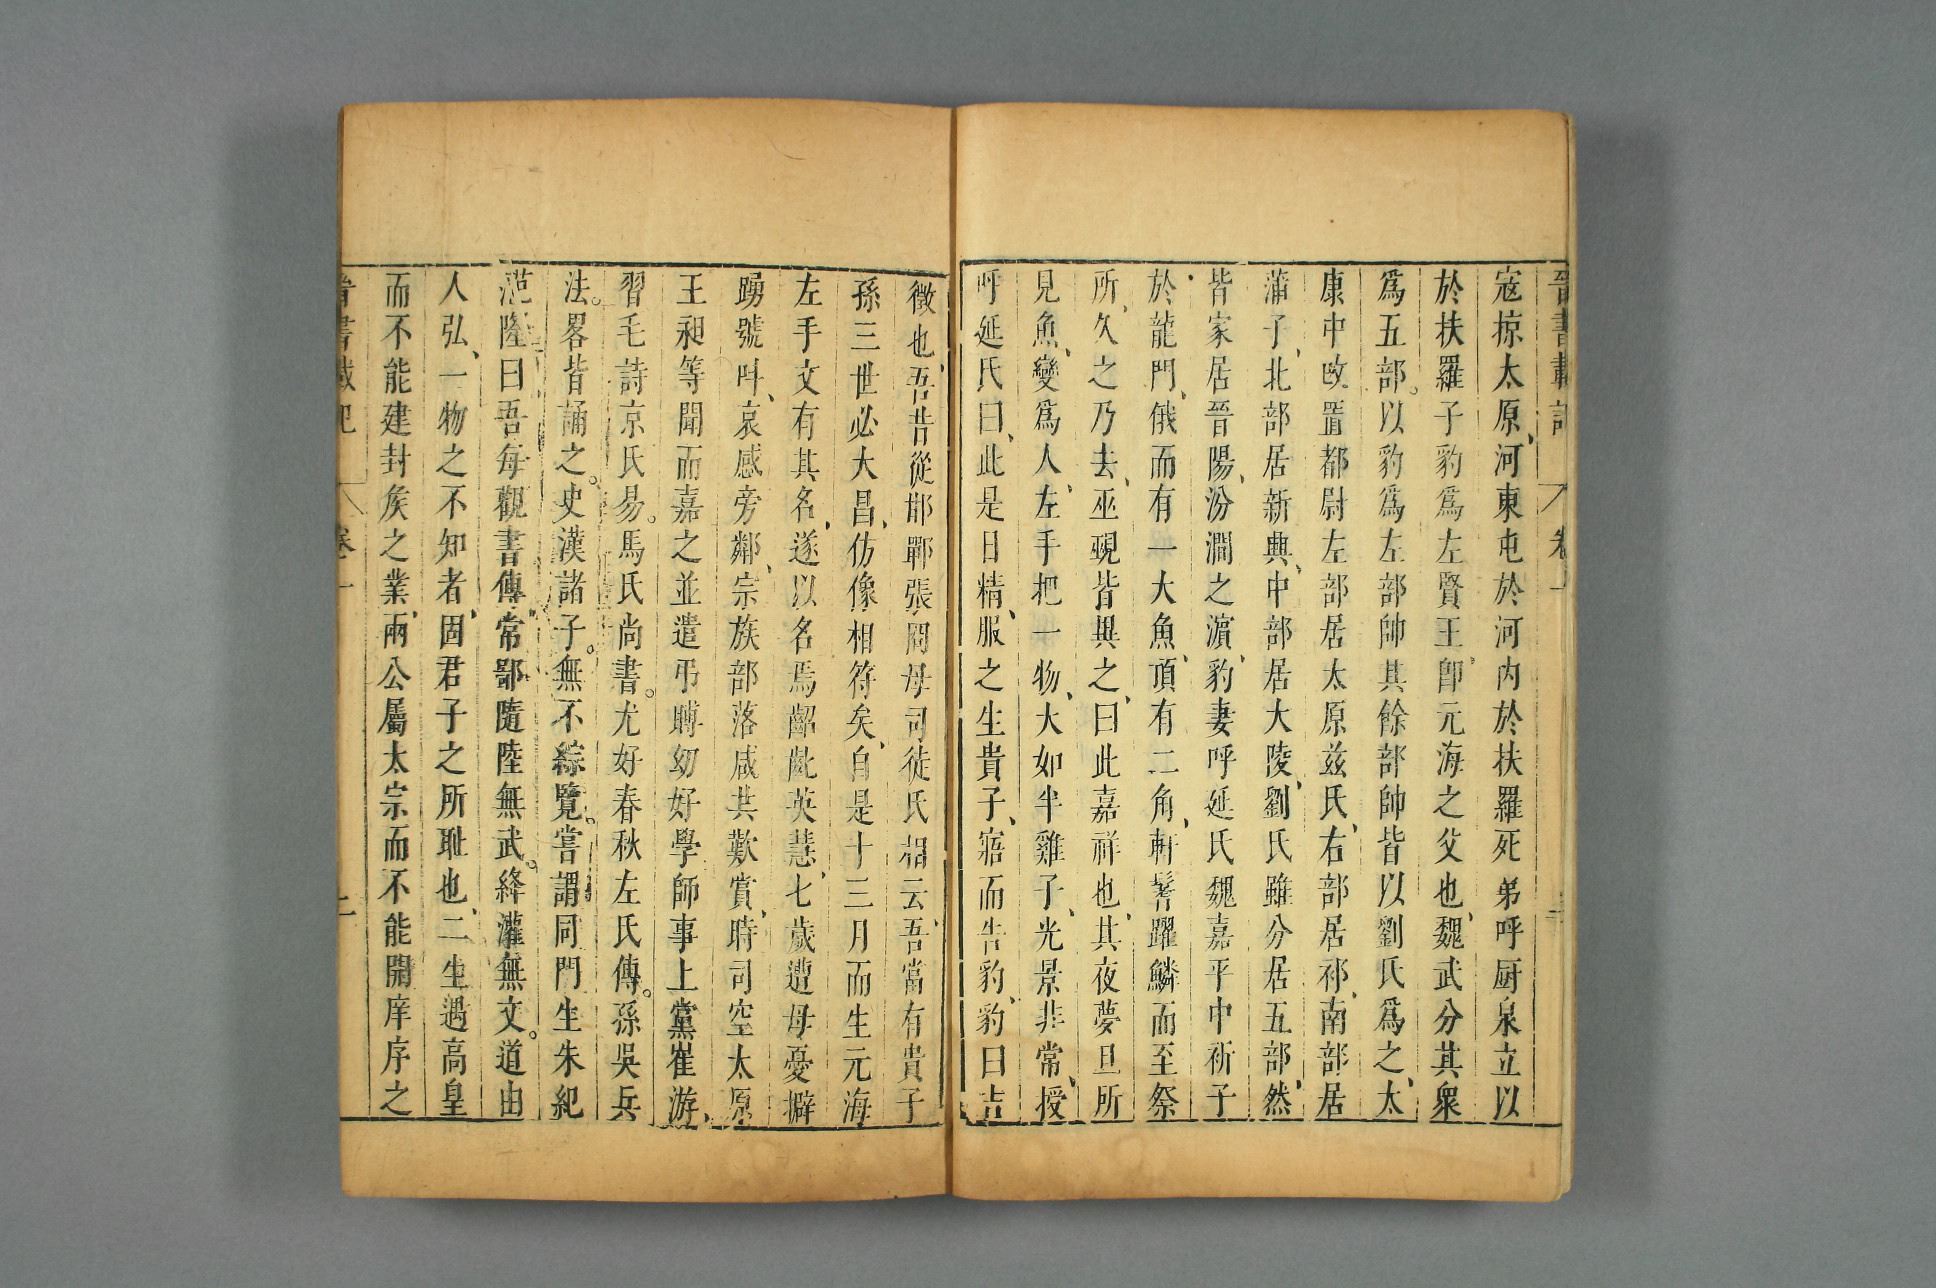 晉書載記 卷一
寇掠太原、河東屯於河内於扶羅死弟呼厨泉立以
於扶羅子豹爲左賢王。卽元海之父也、魏武分其衆
爲五部。以豹爲左部帥其餘部帥皆以劉氏爲之、太
康中改置都尉左部居太原兹氏、右部居祁、南部居
蒲子、北部居新興、中部居大陵、劉氏雖分居五部、然
皆家居晉陽、汾澗之濵、豹妻呼延氏魏嘉平中祈子
於龍門、俄而有一大魚、頂有二角、軒鬐躍鱗而至祭
所、久之乃去、巫覡皆異之、曰此嘉祥也、其夜夢旦所
見魚、變爲人、左手把一物、大如半雞子、光景非常、授
呼延氏曰、此是日精、服之生貴子、寤而告豹、豹曰吉
徵也、吾昔從邯鄲張冏母司徒氏相云、吾當有貴子
孫三世必大昌、仿像相符矣、自是十三月而生元海
左手文有其名、遂以名焉齠齔英慧、七歲遭母憂擗
踴號叫、哀感旁鄰、宗族部落咸共歎賞、時司空太原
王昶等聞而嘉之並遣弔賻幼好學師事上黨崔游、
習毛詩京氏易。馬氏尚書。尤好春秋左氏傳。孫吳兵
法。畧皆誦之。史漢諸子。無不綜覽。嘗謂同門生朱紀
范隆曰吾每觀書傳、常鄙隨陸無武。絳灌無文。道由
人弘、一物之不知者、固君子之所耻也、二生遇高皇
而不能建封矦之業、兩公屬太宗而不能開庠序之
晉書載記 卷一 二